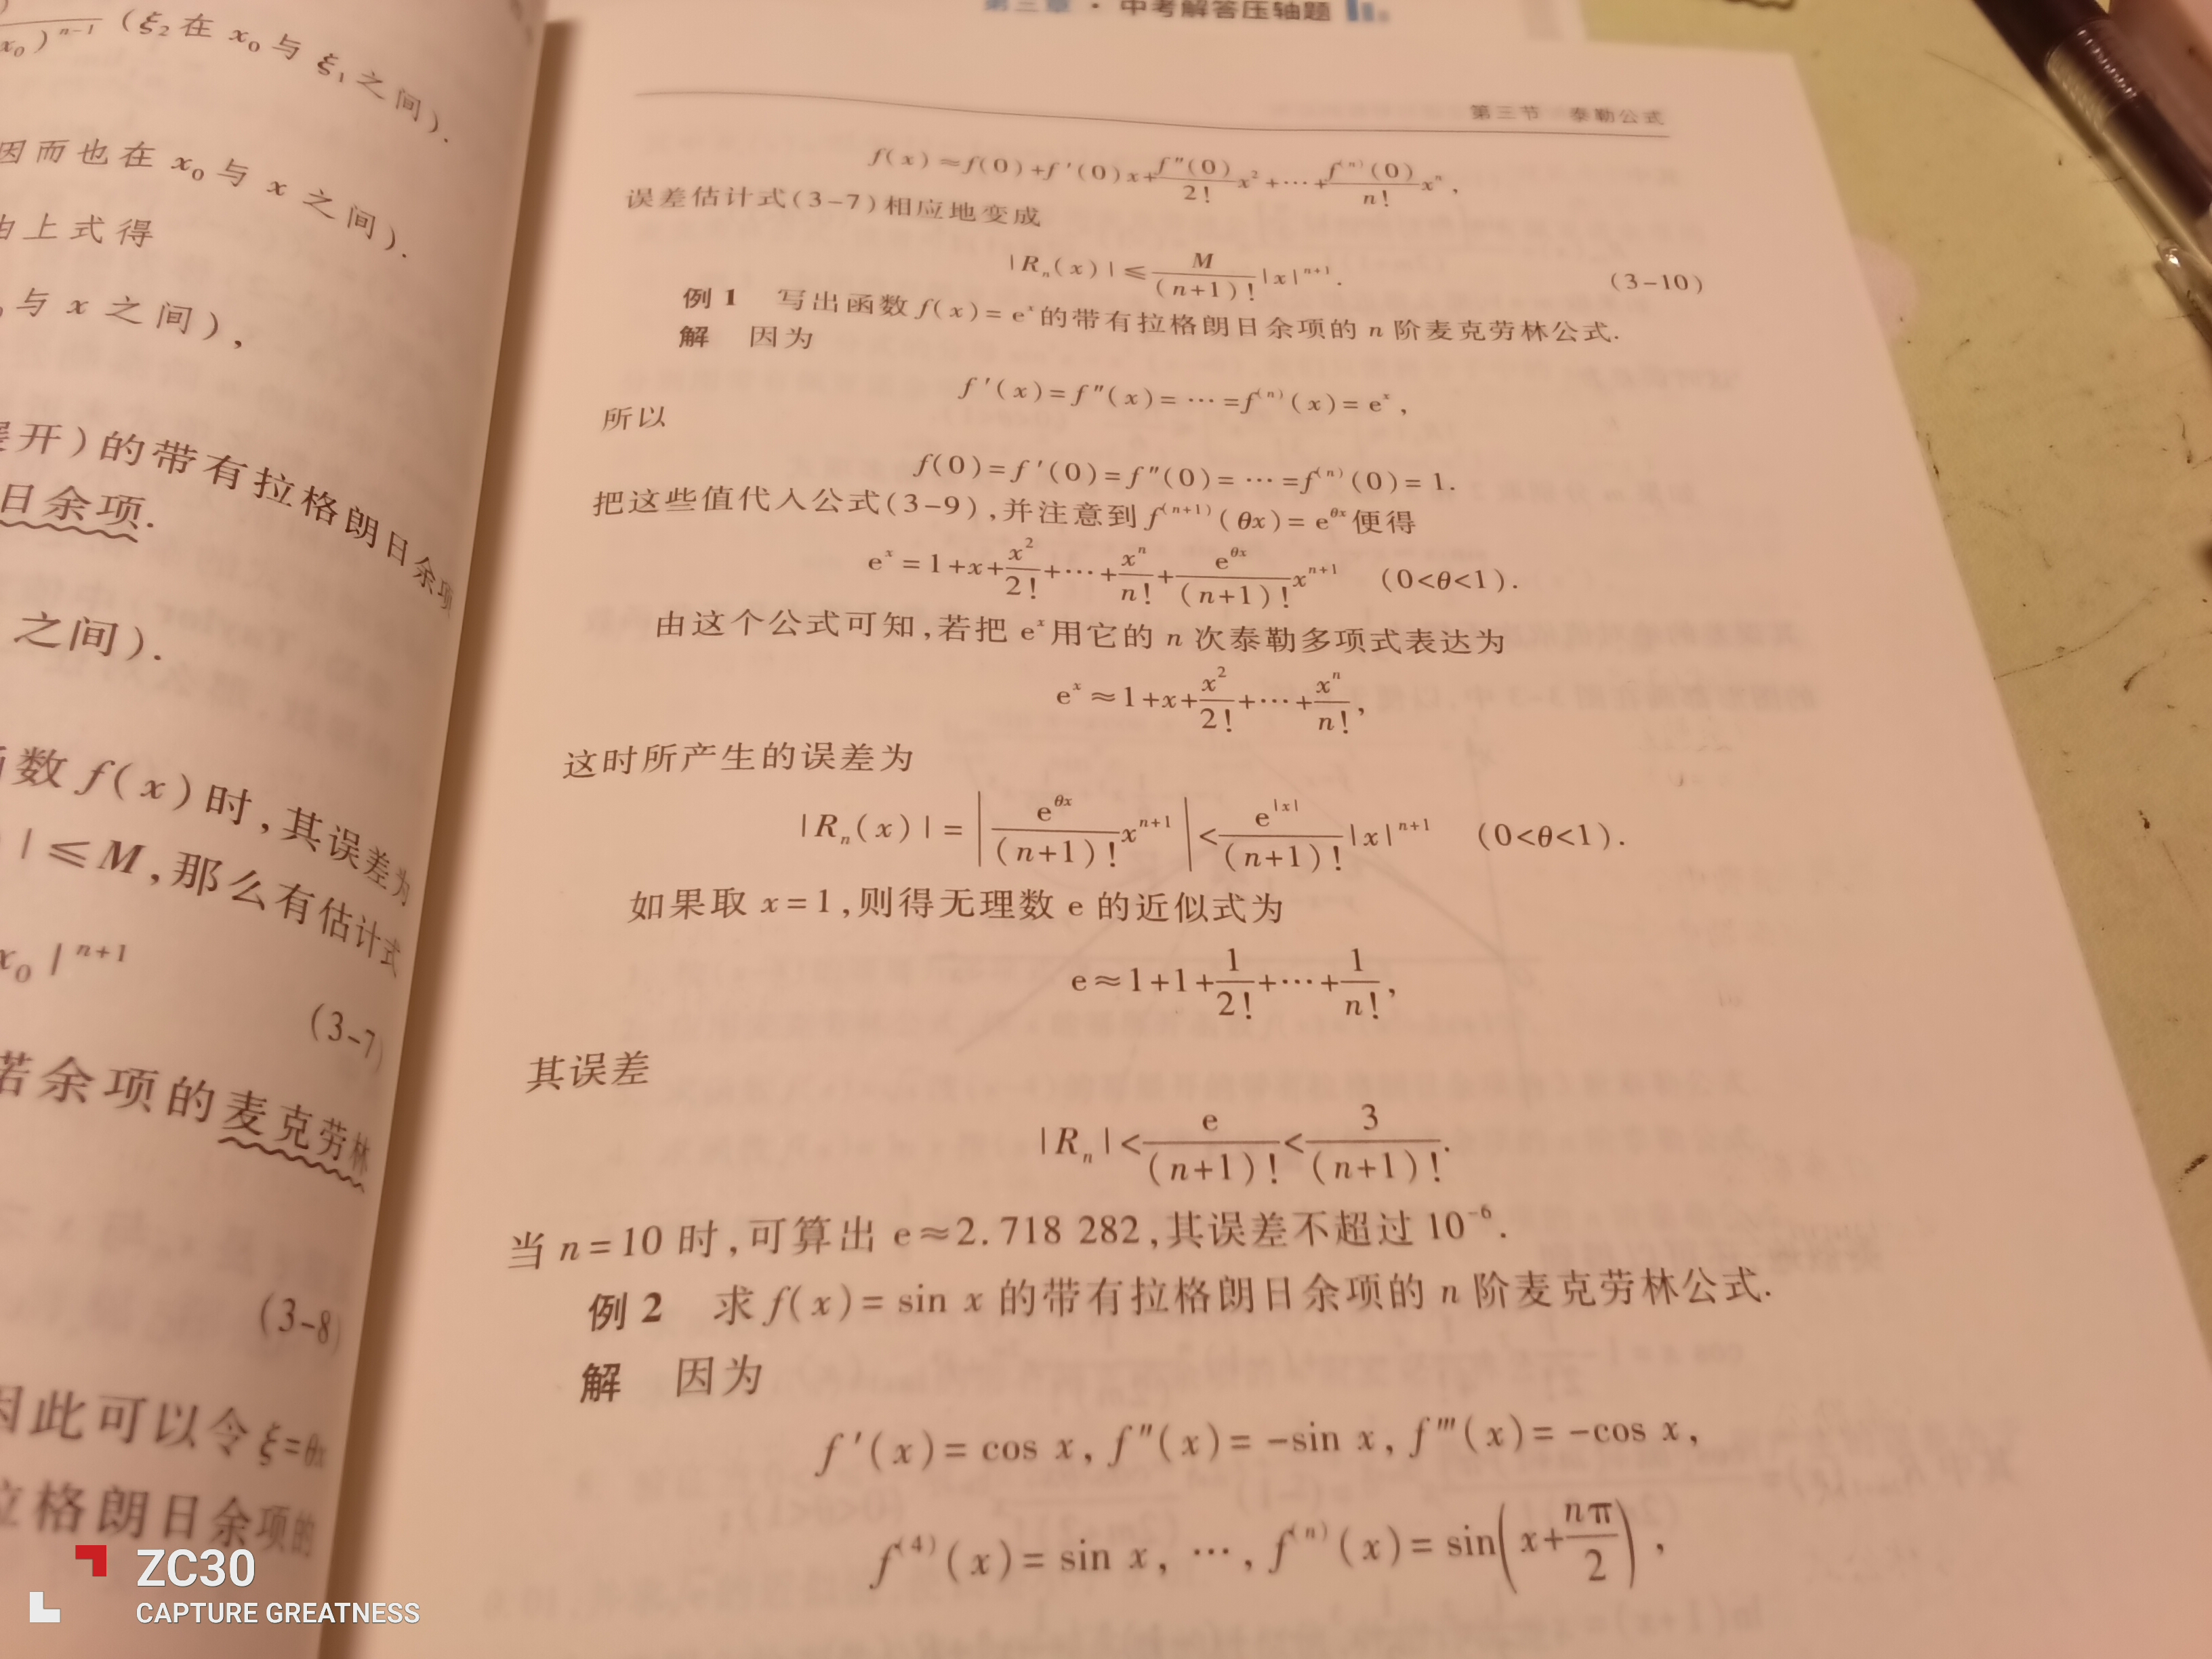 第三章 · 中考解答压轴题
x₀)ⁿ⁻¹ (ξ₂在 x₀ 与 ξ₁ 之间).
因而也在 x₀ 与 x 之间).
由上式得
与 x 之间),
展开)的带有拉格朗日余项
日余项.
之间).
函数 f(x)时,其误差为
|≤M,那么有估计式
x₀|ⁿ⁺¹
(3-7)
若余项的麦克劳林
(3-8)
因此可以令 ξ=θx
拉格朗日余项的
第三节 泰勒公式
f(x)≈f(0)+f′(0)x+\frac{f″(0)}{2!}x²+⋯+\frac{f⁽ⁿ⁾(0)}{n!}xⁿ,
误差估计式(3-7)相应地变成
|Rₙ(x)|≤\frac{M}{(n+1)!}|x|ⁿ⁺¹. (3-10)
例 1 写出函数 f(x)=eˣ的带有拉格朗日余项的 n 阶麦克劳林公式.
解 因为
f′(x)=f″(x)=⋯=f⁽ⁿ⁾(x)=eˣ,
所以
f(0)=f′(0)=f″(0)=⋯=f⁽ⁿ⁾(0)=1.
把这些值代入公式(3-9),并注意到 f⁽ⁿ⁺¹⁾(θx)=e^{θx}便得
eˣ=1+x+\frac{x²}{2!}+⋯+\frac{xⁿ}{n!}+\frac{e^{θx}}{(n+1)!}xⁿ⁺¹ (0<θ<1).
由这个公式可知,若把 eˣ用它的 n 次泰勒多项式表达为
eˣ≈1+x+\frac{x²}{2!}+⋯+\frac{xⁿ}{n!},
这时所产生的误差为
|Rₙ(x)|=|\frac{e^{θx}}{(n+1)!}xⁿ⁺¹|<\frac{e^{|x|}}{(n+1)!}|x|ⁿ⁺¹ (0<θ<1).
如果取 x=1,则得无理数 e 的近似式为
e≈1+1+\frac{1}{2!}+⋯+\frac{1}{n!},
其误差
|Rₙ|<\frac{e}{(n+1)!}<\frac{3}{(n+1)!}.
当 n=10 时,可算出 e≈2.718 282,其误差不超过 10⁻⁶.
例 2 求 f(x)=sin x 的带有拉格朗日余项的 n 阶麦克劳林公式.
解 因为
f′(x)=cos x, f″(x)=-sin x, f‴(x)=-cos x,
f⁽⁴⁾(x)=sin x, ⋯, f⁽ⁿ⁾(x)=sin(x+\frac{nπ}{2}),
ZC30
CAPTURE GREATNESS